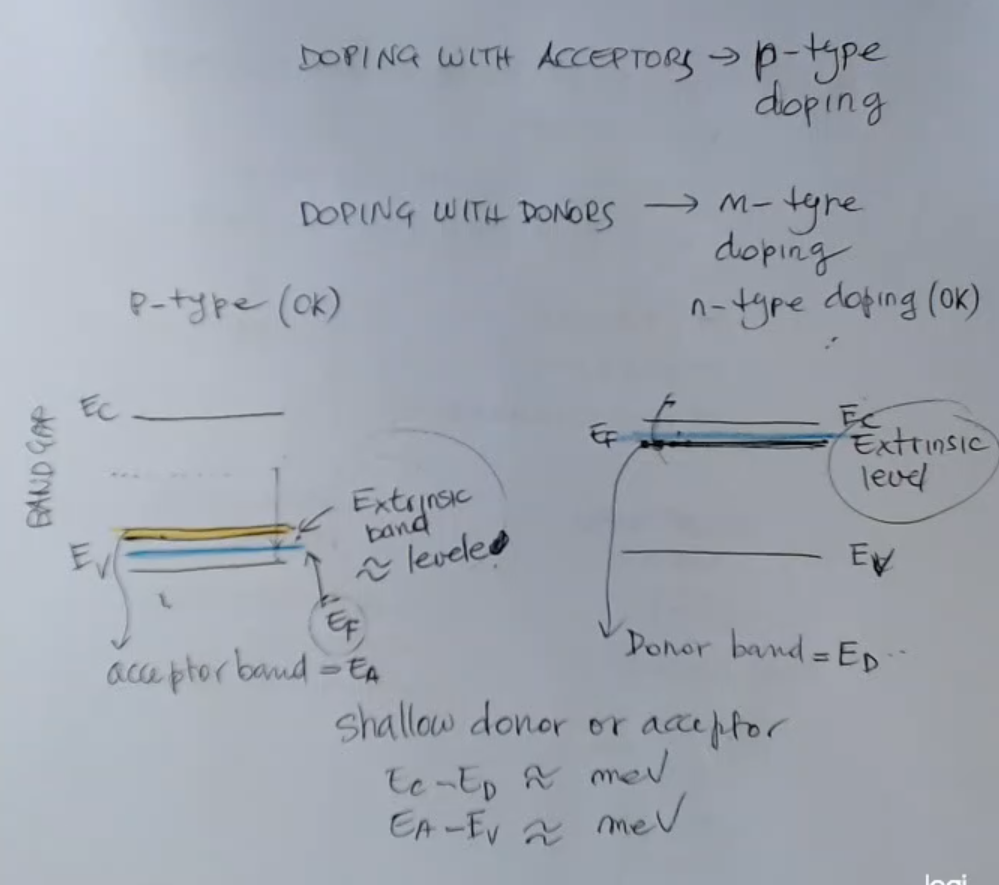 DOPING WITH ACCEPTORS → p-type
doping
DOPING WITH DONORS → n-type
doping
p-type (OK)
n-type doping (OK)
BAND GAP
EC
EV
Extrinsic
band
≈ level
EF
acceptor band = EA
EF
EC
Extrinsic
level
EV
Donor band = ED
shallow donor or acceptor
EC-ED ≈ meV
EA-EV ≈ meV
logi